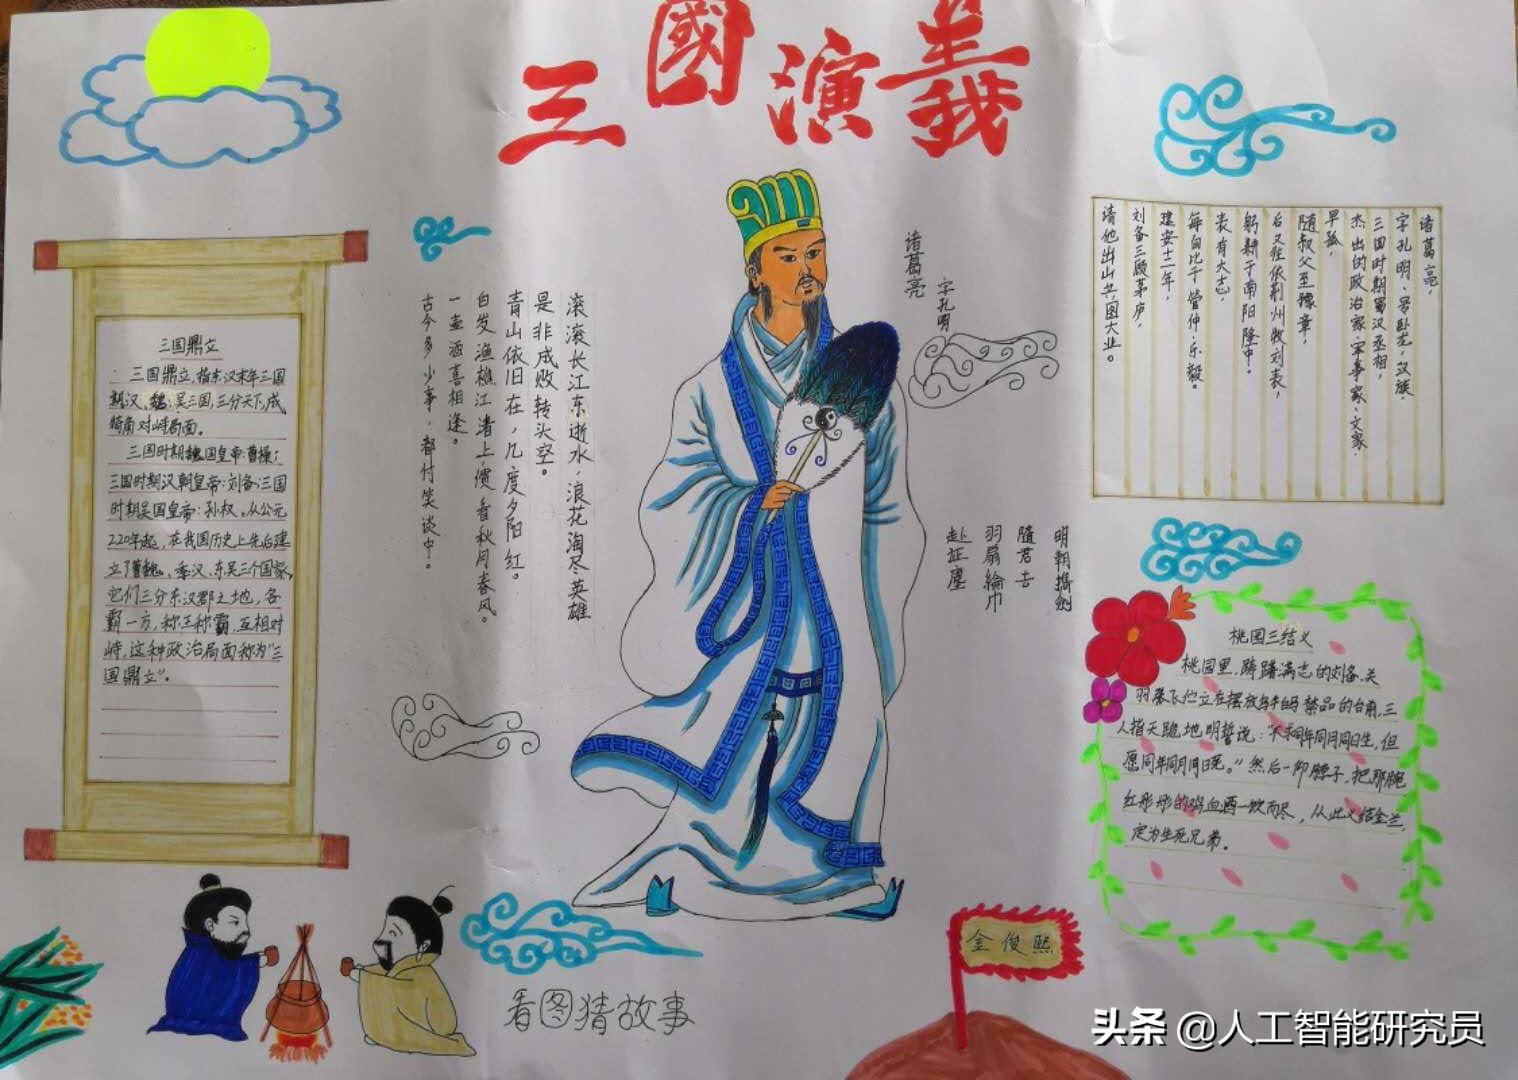 三國演義
三国鼎立
三国鼎立，指东汉末年三国
期汉、魏、吴三国，三分天下，成
犄角对峙局面。
三国时期魏国皇帝：曹操；
三国时期汉朝皇帝：刘备；三国
时期吴国皇帝：孙权。从公元
220年起，在我国历史上先后建
立了曹魏、季汉、东吴三个国家，
它们三分东汉郡之地，各
霸一方，称王称霸，互相对
峙，这种政治局面称为“三
国鼎立”。
滚滚长江东逝水，浪花淘尽英雄
是非成败转头空。
青山依旧在，几度夕阳红。
白发渔樵江渚上，惯看秋月春风。
一壶酒喜相逢。
古今多少事，都付笑谈中。
诸葛亮
字孔明
明朝携剑
随君去
羽扇綸巾
赴征塵
诸葛亮，
字孔明、号卧龙，汉族，
三国时期蜀汉丞相，
杰出的政治家、军事家、文家，
早孤，
随叔父至豫章，
后又往依荆州牧刘表，
躬耕于南阳隆中。
表有大志，
每自比于管仲、乐毅。
建安十二年，
刘备三顾茅庐，
请他出山共图大业。
桃园三结义
桃园里，踌躇满志的刘备、关
羽张飞伫立在摆放 祭品的台前，三
人指天跪地明誓说：“不求同年同月同日生，但
愿同年同月同日死。”然后一仰脖子，把那腕
红彤彤的鸡血酒一饮而尽，从此义结金兰，
定为生死兄弟。
看图猜故事
金俊熙
头条 @人工智能研究员